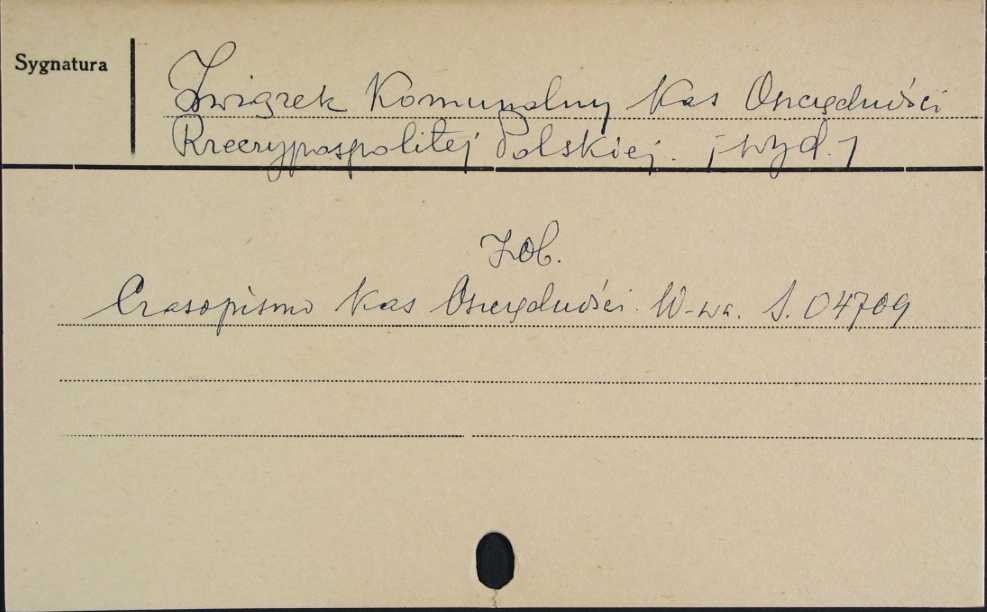 Sygnatura
Związek Komunalny Kas Oszczędności
Rzeczypospolitej Polskiej. /wyd./
Zob.
Czasopismo Kas Oszczędności. W-wa. S. 04709